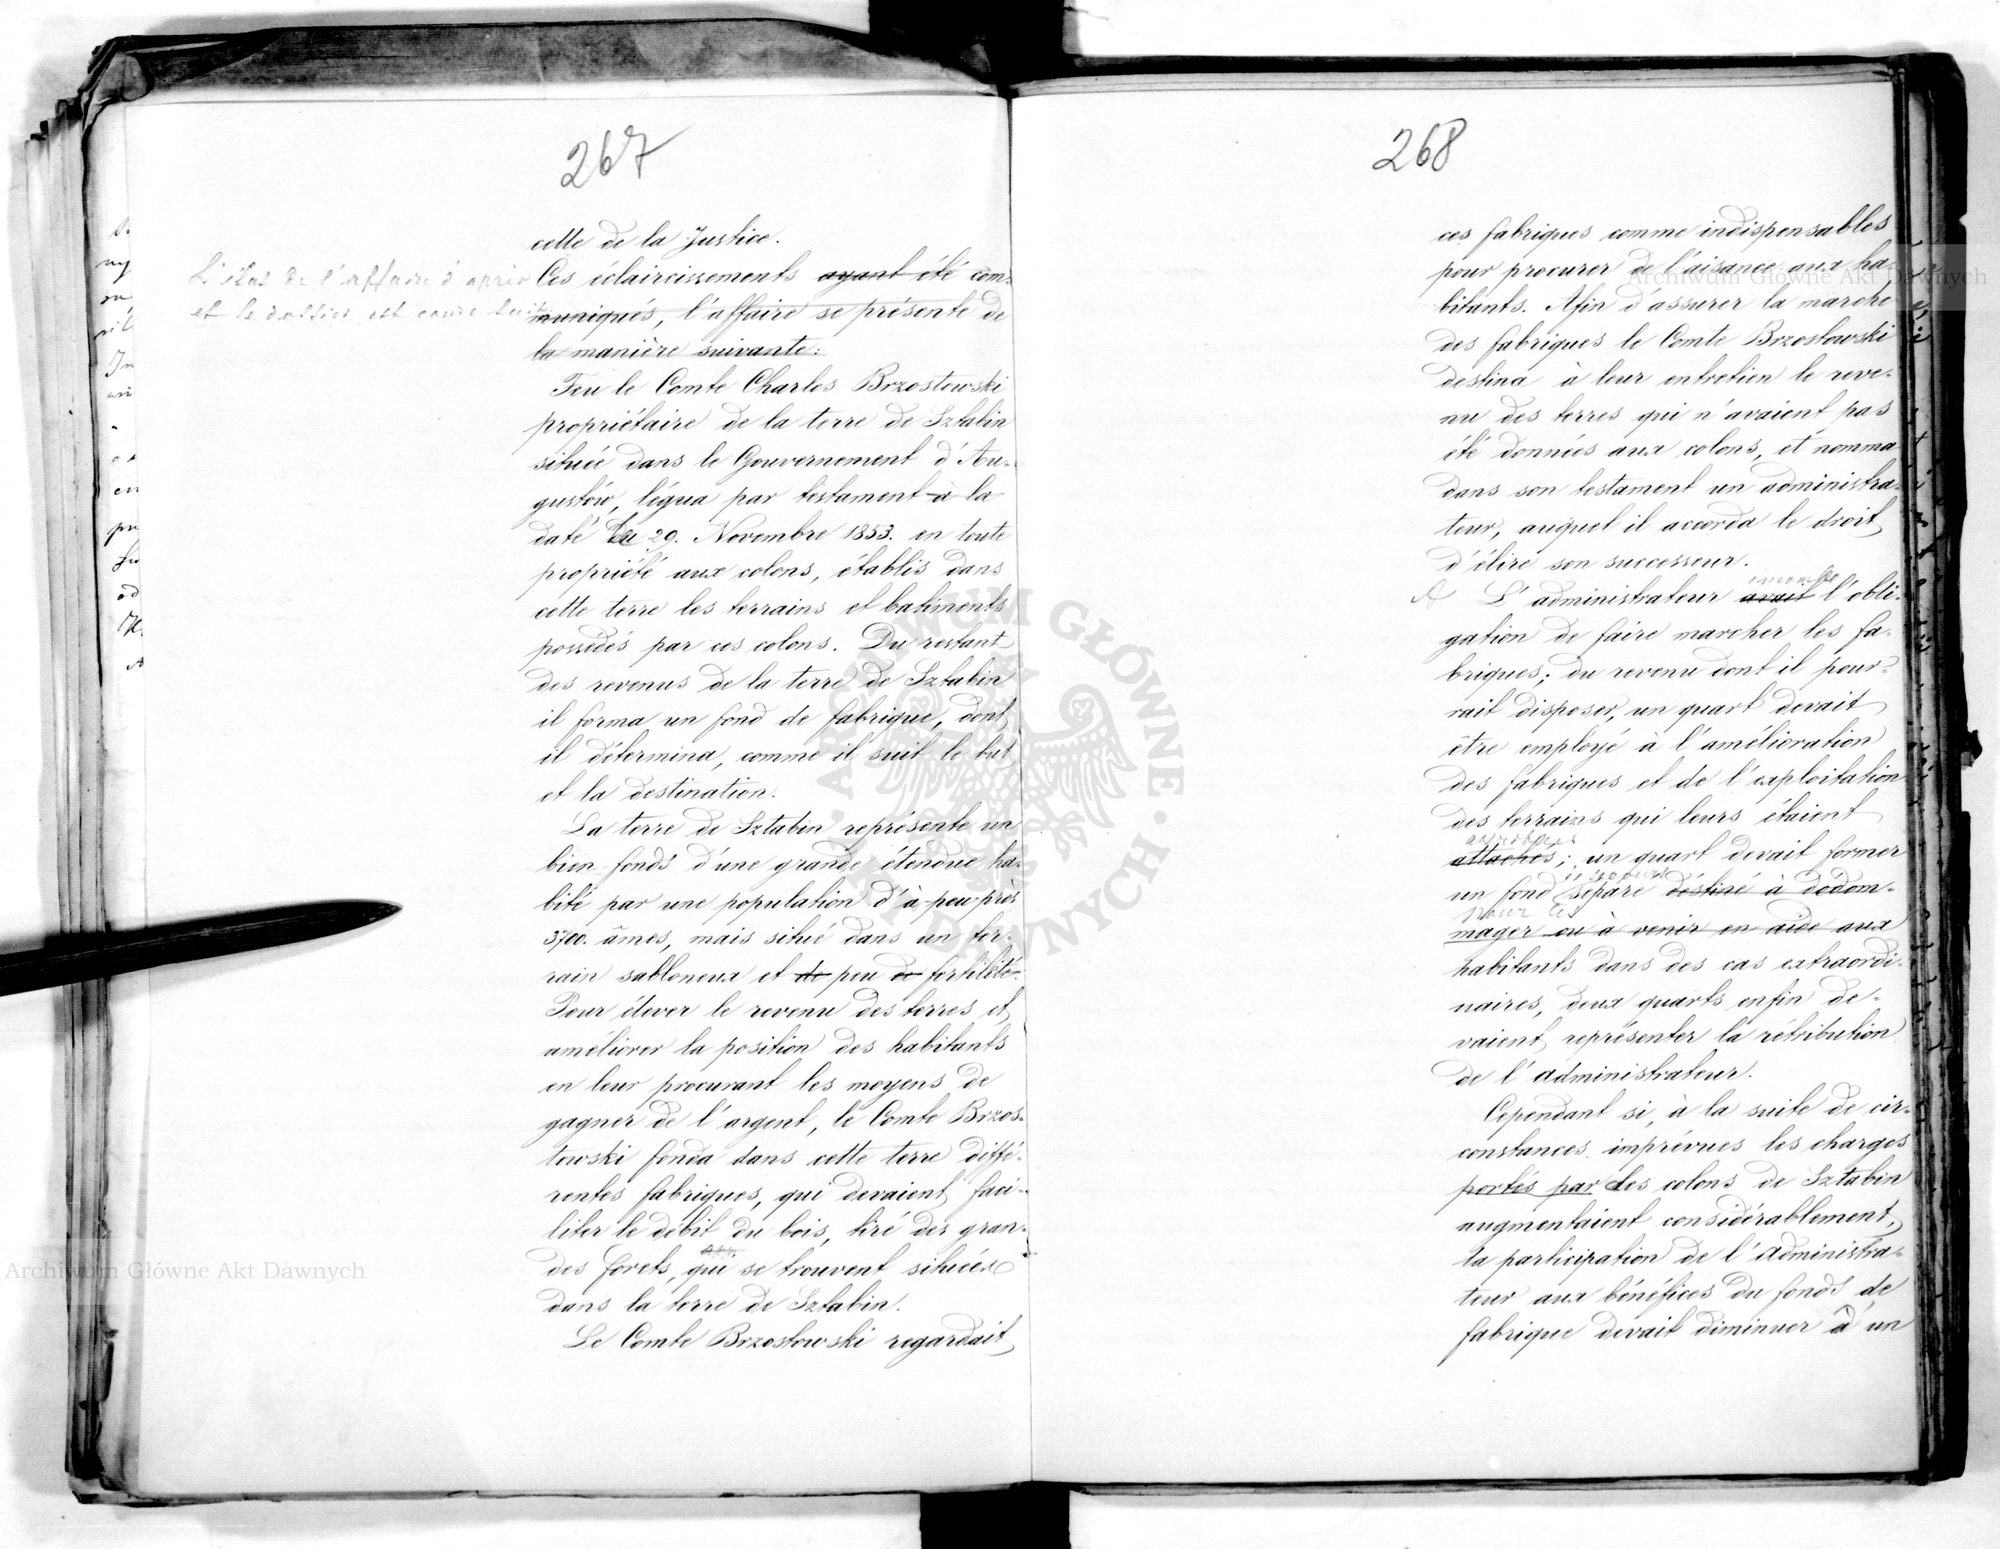 267
cette de la Justice.
L'état de l'affaire d'après
et le dossier est
Ces éclaircissements ayant été com-
muniqués, l'affaire se présente de
la manière suivante:
Feu le Comte Charles Brzostowski
propriétaire de la terre de Sztabin
située dans le Gouvernement d'Au-
gustów, légua par testament à la
daté du 29. Novembre 1853. en toute
propriété aux colons, établis dans
cette terre les terrains et batiments
possédés par ces colons. Du restant
des revenus de la terre de Sztabin
il forma un fond de fabrique, dont
il détermina, comme il suit le but
et la destination.
La terre de Sztabin représente un
bien-fonds d'une grande étendue ha-
bité par une population d'à-peu-près
3700. âmes, mais situé dans un ter-
rain sabloneux et de peu de fertilité.
Pour élever le revenu des terres et
améliorer la position des habitants
en leur procurant les moyens de
gagner de l'argent, le Comte Brzos-
towski fonda dans cette terre diffé-
rentes fabriques, qui devaient faci-
liter le débit du bois, tiré des gran-
des forets, qui se trouvent situées
dans la terre de Sztabin.
Le Comte Brzostowski regardait
268
ces fabriques comme indispensables
pour procurer de l'aisance aux ha-
bitants. Afin d'assurer la marche
des fabriques le Comte Brzostowski
destina à leur entretien le reve-
nu des terres qui n'avaient pas
été données aux colons, et nomma
dans son testament un administra-
teur, auquel il accorda le droit
d'élire son successeur.
L'administrateur avait l'obli-
gation de faire marcher les fa-
briques; du revenu dont il pour-
rait disposer, un quart devait
être employé à l'amélioration
des fabriques et de l'exploitation
des terrains qui leurs étaient
attachés; un quart devait former
un fond séparé déstiné à dédom-
pour les
mager ou à venir en aide aux
habitants dans des cas extraordi-
naires, deux quarts enfin de-
vaient représenter la rétribution
de l'administrateur.
Cependant si, à la suite de cir-
constances imprévues les charges
portés par les colons de Sztabin
augmentaient considérablement,
la participation de l'administra-
teur aux bénéfices du fonds de
fabrique devait diminuer à un